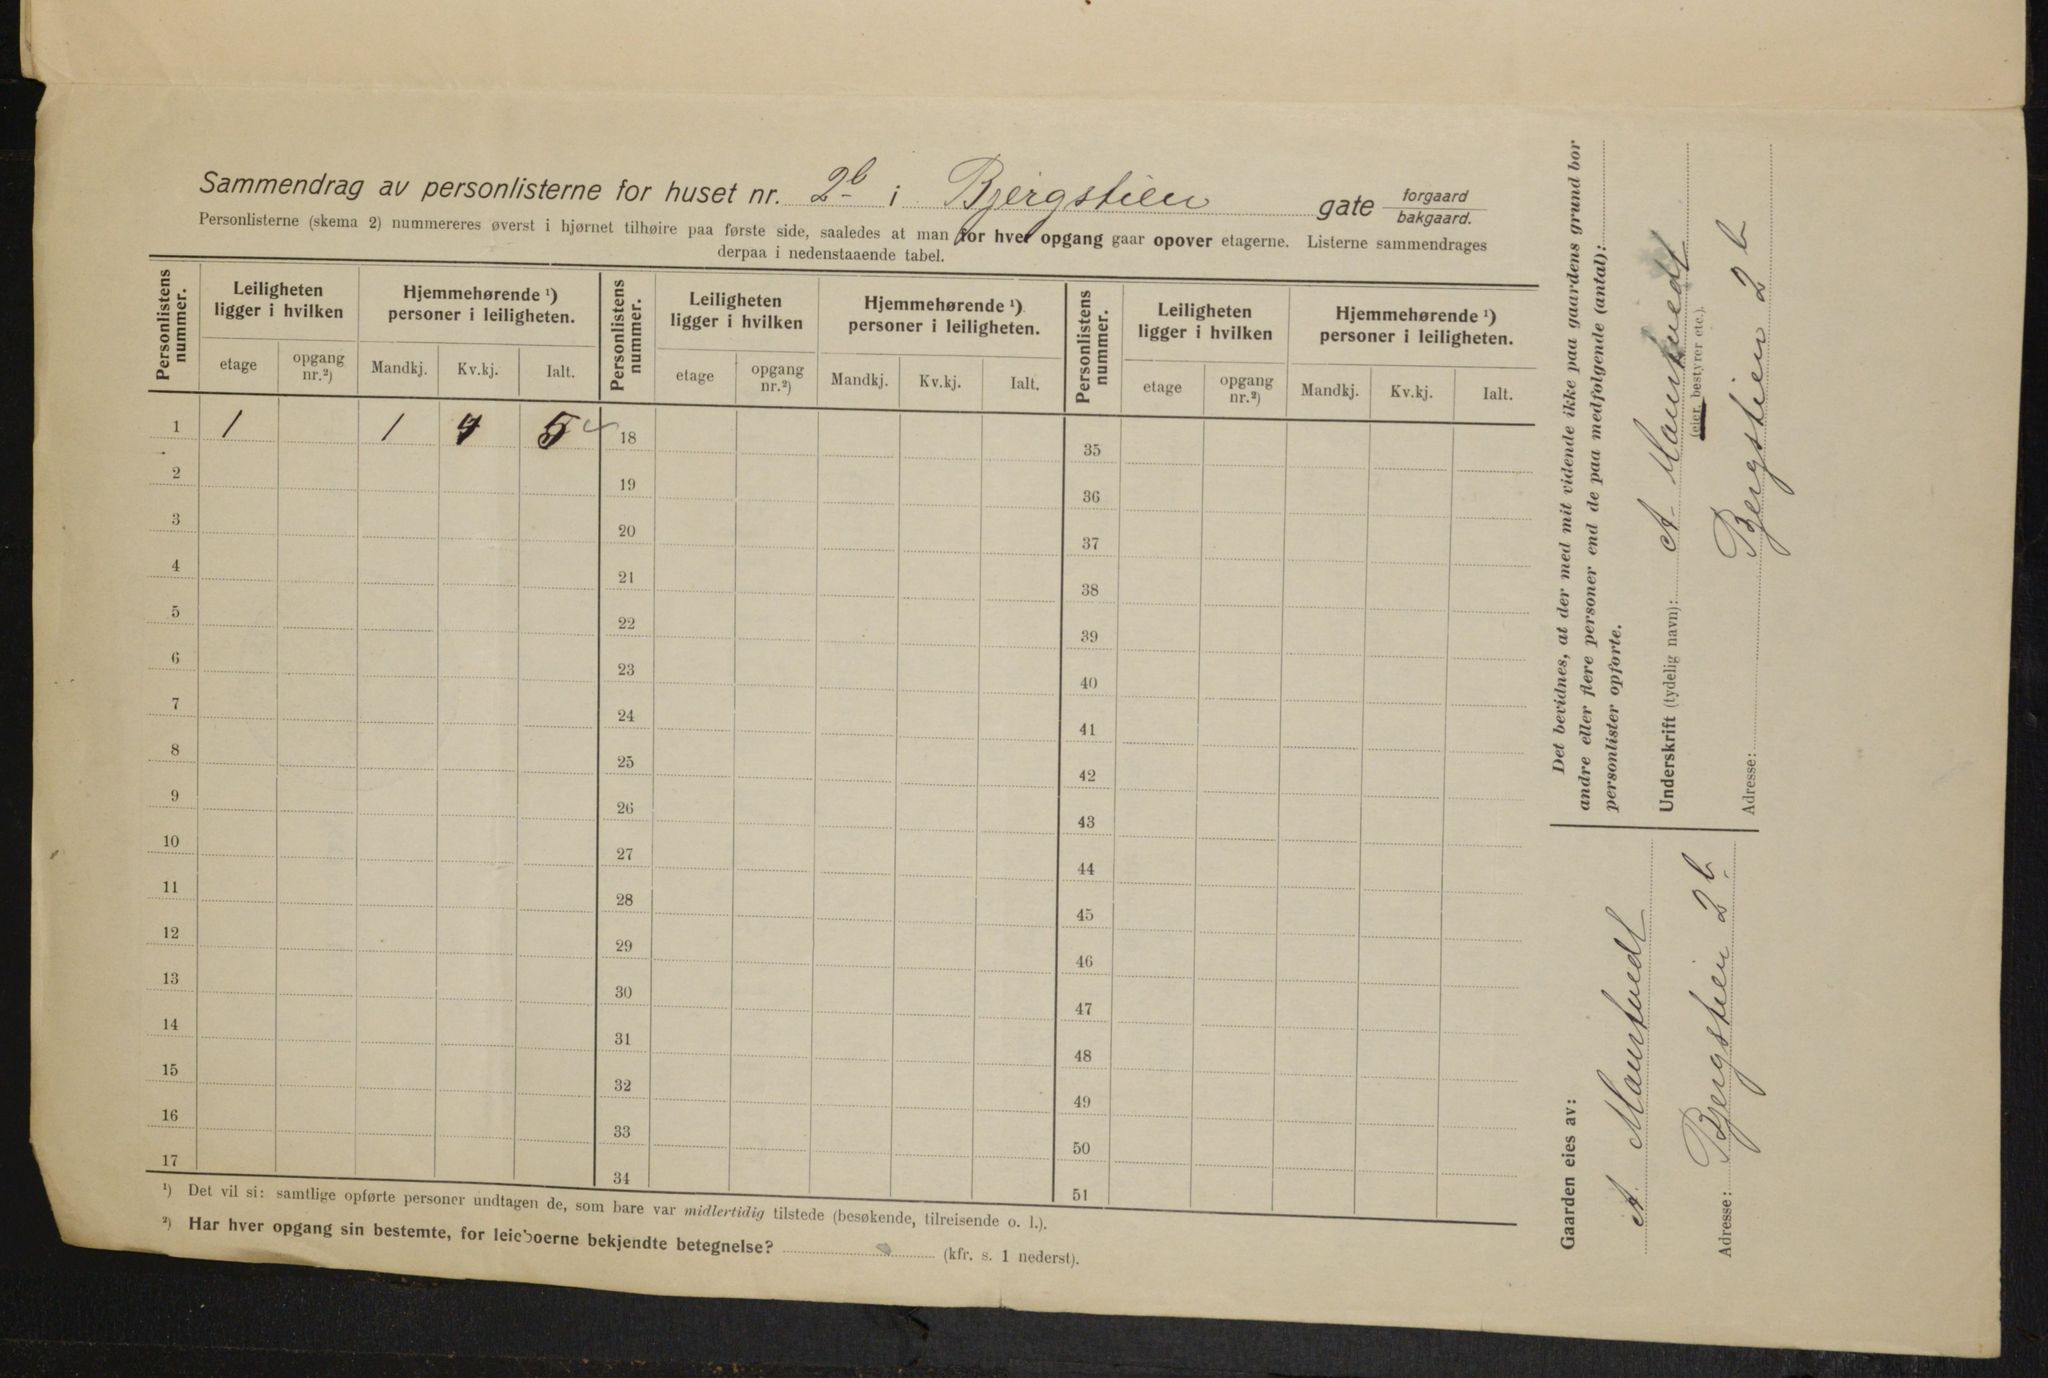 Sammendrag av personlisterne for huset nr. 2b i Bjergstien gate forgaard bakgaard.
Personlisterne (skema 2) nummereres øverst i hjørnet tilhøire paa første side, saaledes at man for hver opgang gaar opover etagerne. Listerne sammendrages
derpaa i nedenstaaende tabel.
Personlistens nummer. Leiligheten ligger i hvilken Hjemmehørende ¹) personer i leiligheten. Personlistens nummer. Leiligheten ligger i hvilken Hjemmehørende ¹) personer i leiligheten. Personlistens nummer. Leiligheten ligger i hvilken Hjemmehørende ¹) personer i leiligheten.
etage opgang nr.²) Mandkj. Kv.kj. Ialt. etage opgang nr.²) Mandkj. Kv.kj. Ialt. etage opgang nr.²) Mandkj. Kv.kj. Ialt.
1 1 1 4 5 18 35
2 19 36
3 20 37
4 21 38
5 22 39
6 23 40
7 24 41
8 25 42
9 26 43
10 27 44
11 28 45
12 29 46
13 30 47
14 31 48
15 32 49
16 33 50
17 34 51
¹) Det vil si: samtlige opførte personer undtagen de, som bare var midlertidig tilstede (besøkende, tilreisende o. l.).
²) Har hver opgang sin bestemte, for leieboerne bekjendte betegnelse? (kfr. s. 1 nederst).
Det bevidnes, at der med mit vidende ikke paa gaardens grund bor
andre eller flere personer end de paa medfølgende (antal):
personlister opførte.
Underskrift (tydelig navn): A. Manstvedt
(eier, bestyrer etc.).
Adresse: Bjergstien 2 b
Gaarden eies av:
A. Manstvedt
Adresse: Bjergstien 2 b.